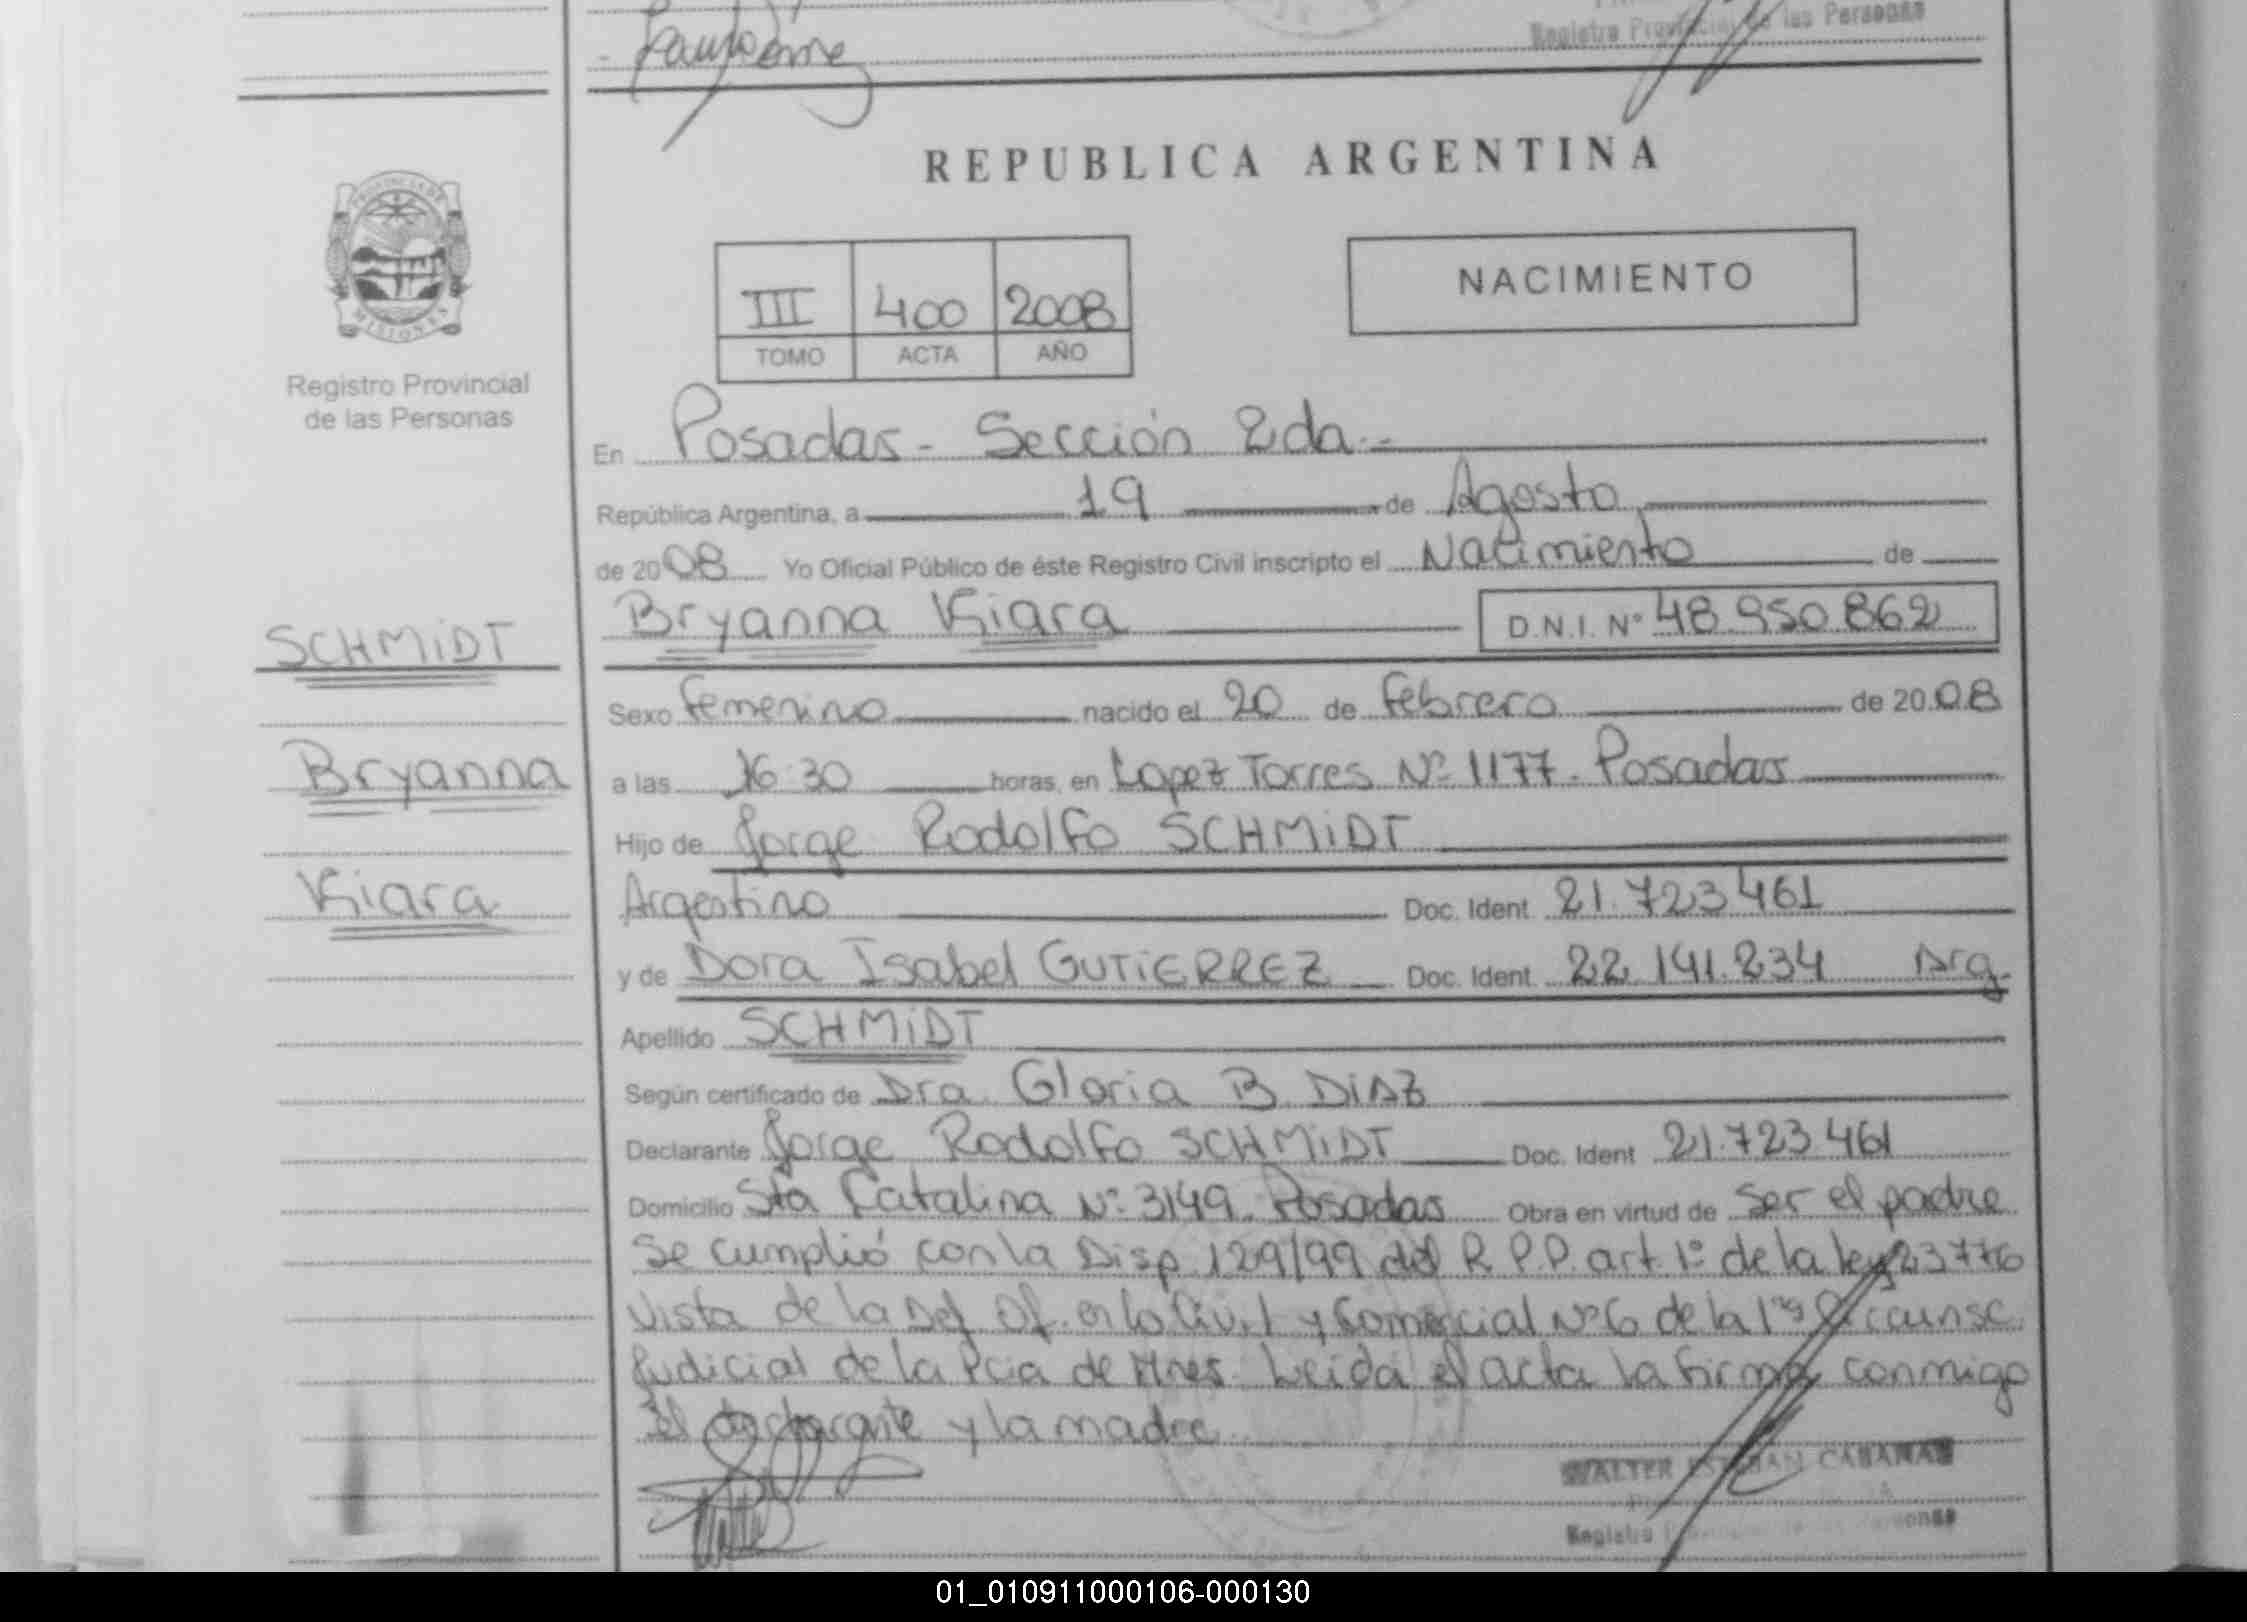 Registro Provincial de las Personas
REPUBLICA ARGENTINA
PROVINCIA DE
MISIONES
Registro Provincial
de las Personas
III 400 2008
TOMO ACTA AÑO
NACIMIENTO
En Posadas - Sección 2da.-
República Argentina, a 19 de Agosto
de 2008 Yo Oficial Público de éste Registro Civil inscripto el Nacimiento de
Bryanna Kiara D.N.I. Nº 48.950.862
SCHMIDT
Sexo femenino nacido el 20 de febrero de 2008
Bryanna
a las 16:30 horas, en Lopez Torres Nº 1177. Posadas
Hijo de Jorge Rodolfo SCHMIDT
Kiara
Argentino Doc. Ident 21.723.461
y de Dora Isabel GUTIERREZ Doc. Ident 22.141.234 Arg.
Apellido SCHMIDT
Según certificado de Dra. Gloria B. DIAZ
Declarante Jorge Rodolfo SCHMIDT Doc. Ident 21.723.461
Domicilio Sta Catalina Nº 3149. Posadas Obra en virtud de ser el padre
Se cumplió con la Disp. 129/99 del R.P.P. art. 1º de la ley 23776
Vista de la Def. Of. en lo Civil y Comercial Nº 6 de la 1ra Circunsc.
Judicial de la Pcia de Mnes. Leída el acta la firma conmigo
el declarante y la madre.
WALTER ESTEBAN CABAÑAS
Registro Provincial de las Personas
01_010911000106-000130